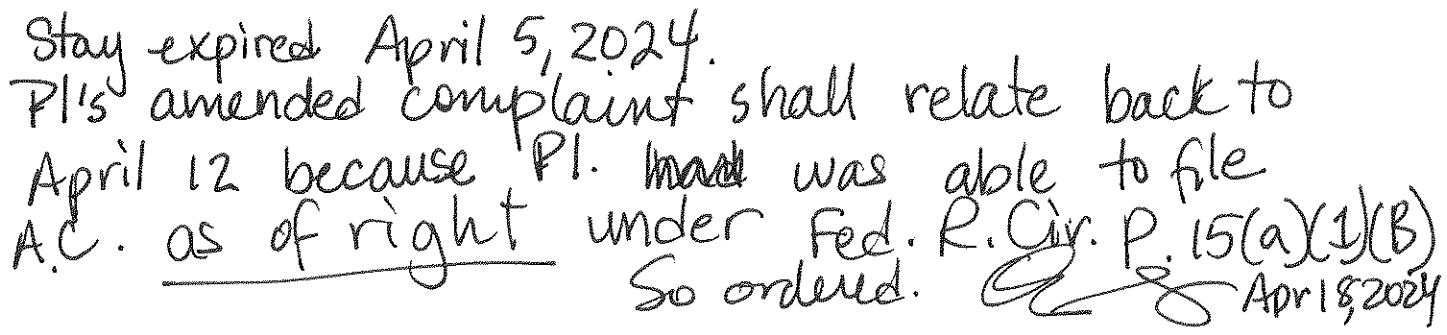 Stay expired April 5, 2024.
Pl's amended complaint shall relate back to
April 12 because Pl. was able to file
A.C. as of right under Fed. R. Civ. P. 15(a)(1)(B)
So ordered. Apr 18, 2024